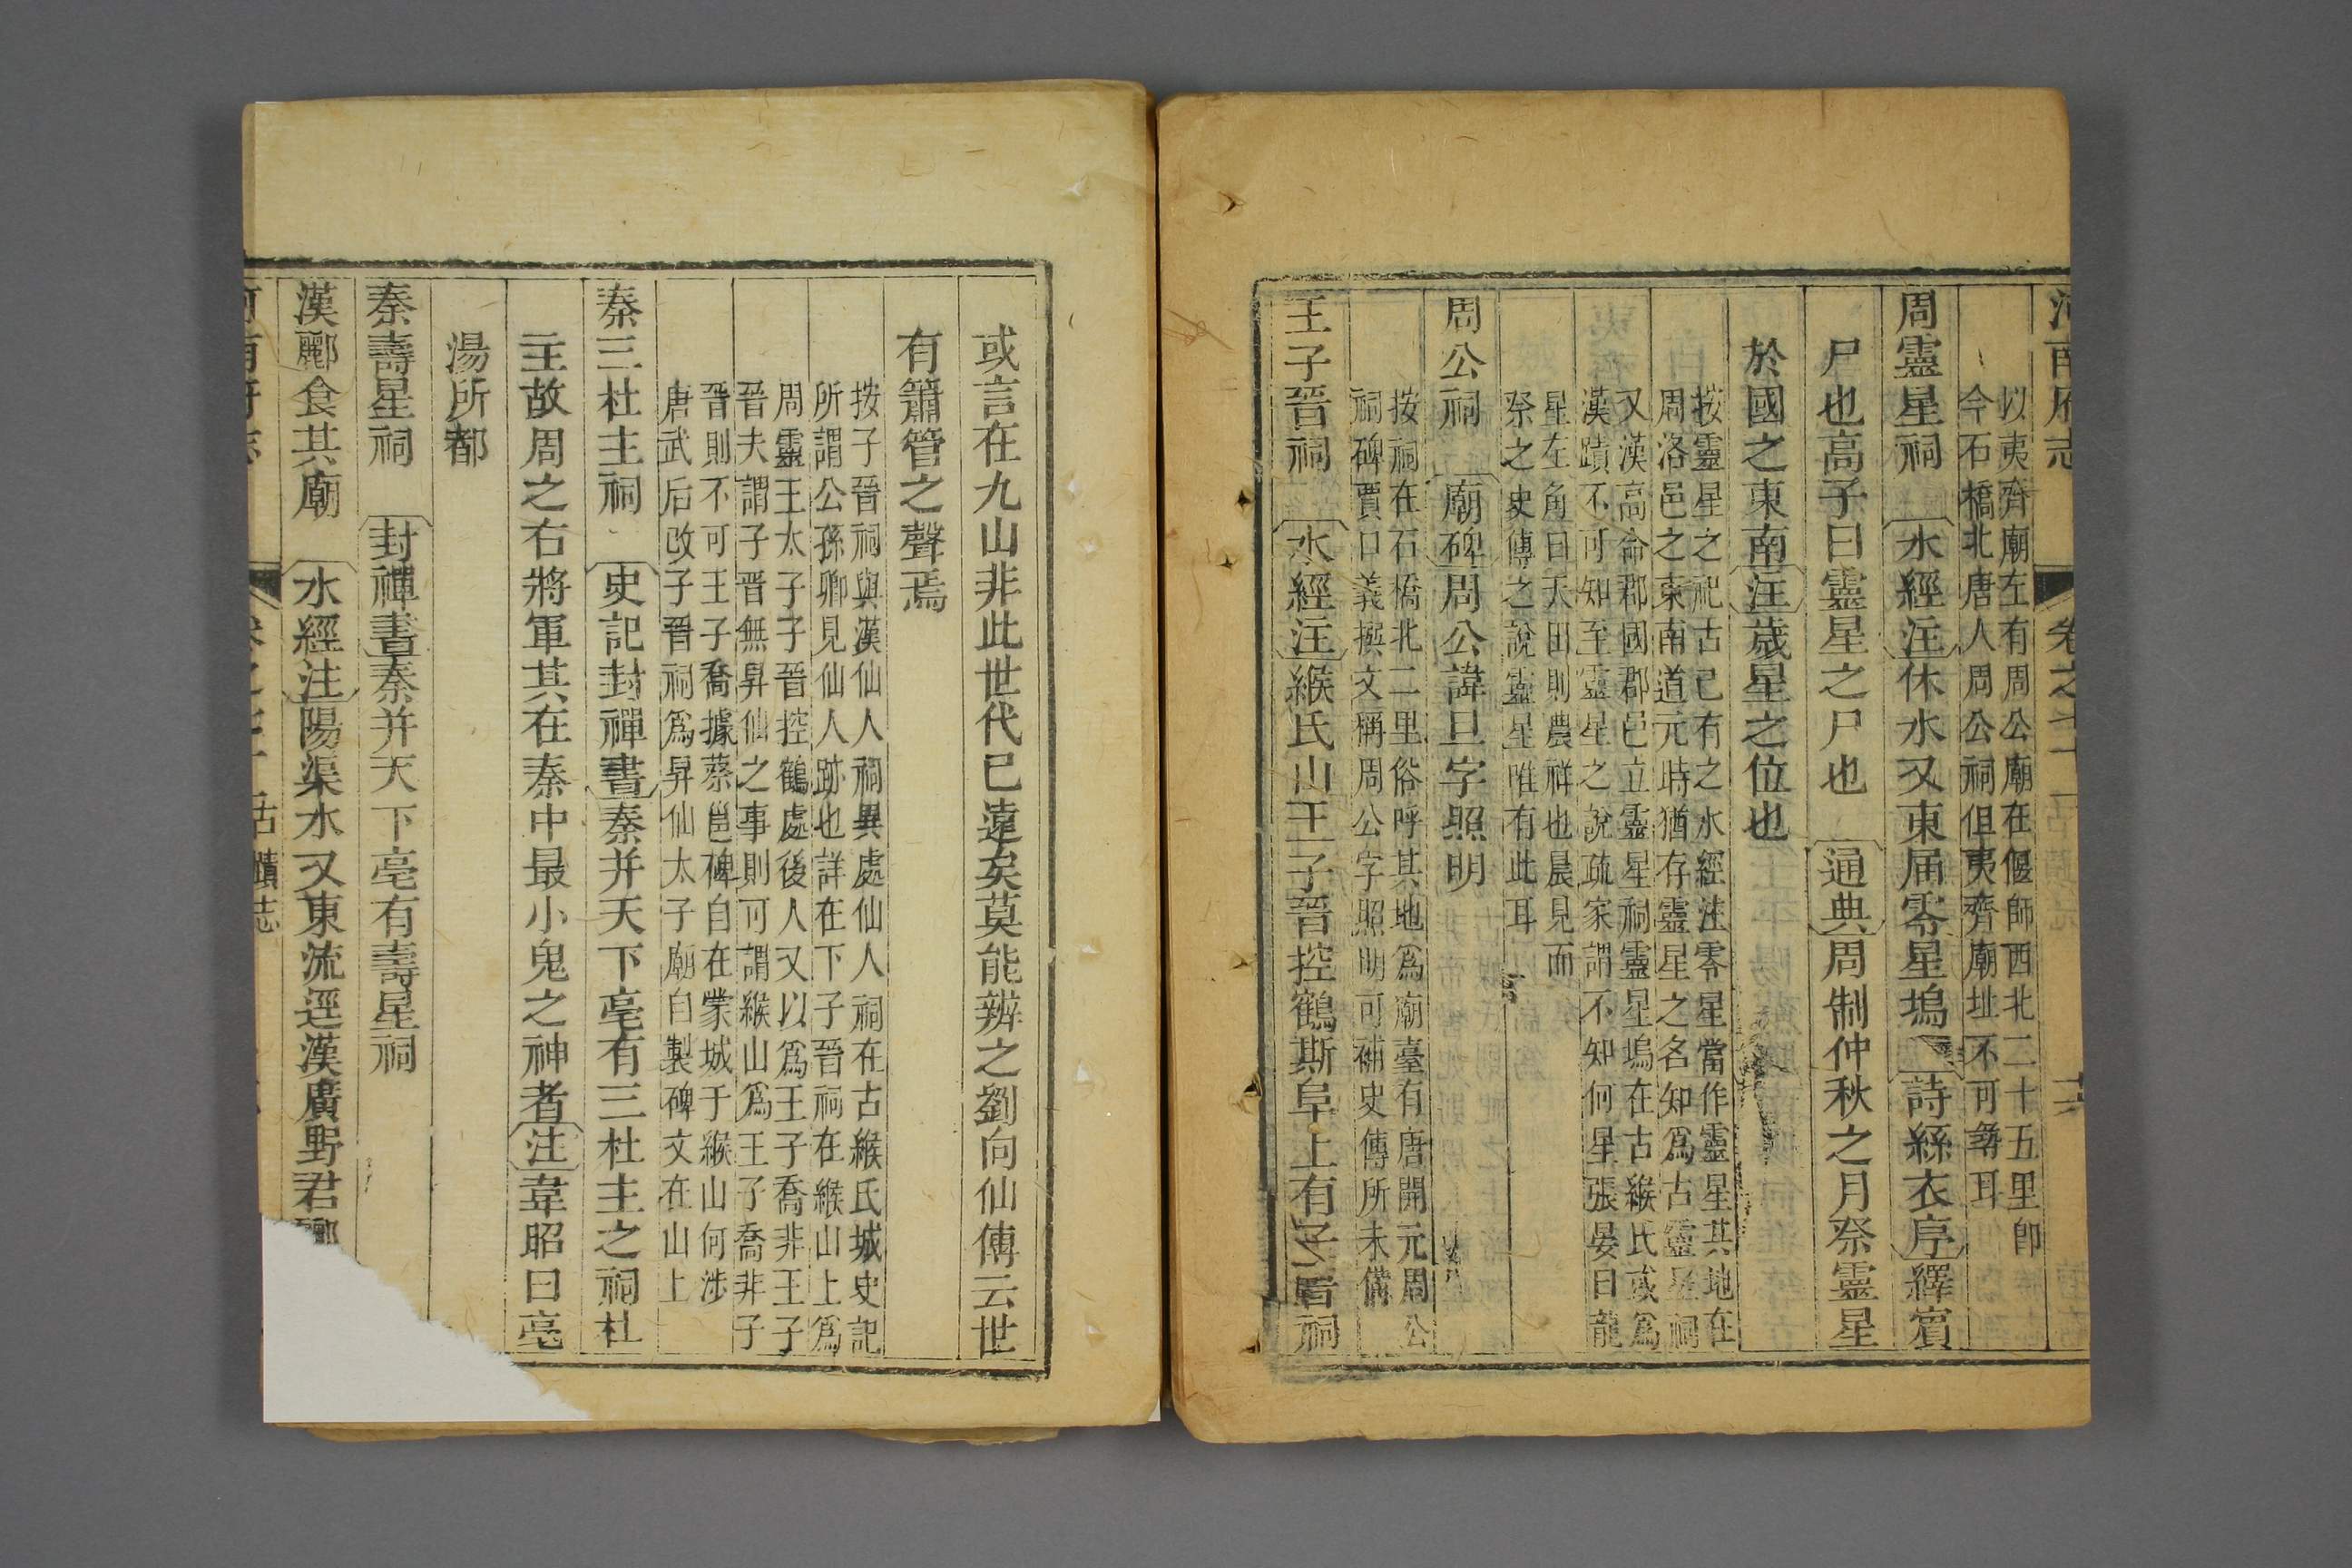 河南府志 卷之七十一 古蹟志 十六
以夷齊廟左有周公廟在偃師西北二十五里即
今石橋北唐人周公祠但夷齊廟址不可尋耳
周靈星祠 水經注休水又東届零星塢 詩絲衣序繹賓
尸也高子曰靈星之尸也 通典周制仲秋之月祭靈星
於國之東南注歲星之位也
按靈星之祀古已有之水經注零星當作靈星其地在
周洛邑之東南道元時猶存靈星之名知爲古靈星祠
又漢高命郡國郡邑立靈星祠靈星塢在古緱氏或爲
漢蹟不可知至靈星之說疏家謂不知何星張晏曰龍
星左角曰天田則農祥也晨見而
祭之史傳之說靈星唯有此耳
周公祠 廟碑周公諱旦字照明
按祠在石橋北二里俗呼其地爲廟臺有唐開元周公
祠碑賈口義撰文稱周公字照明可補史傳所未備
王子晉祠 水經注緱氏山王子晉控鶴斯阜上有子晉祠
或言在九山非此世代已遠矣莫能辨之劉向仙傳云世
有簫管之聲焉
按子晉祠與漢仙人祠異處仙人祠在古緱氏城史記
所謂公孫卿見仙人跡也詳在下子晉祠在緱山上爲
周靈王太子子晉控鶴處後人又以爲王子喬非王子
晉夫謂子晉無昇仙之事則可謂緱山爲王子喬非子
晉則不可王子喬據蔡邕碑自在蒙城于緱山何涉
唐武后改子晉祠爲昇仙太子廟自製碑文在山上
秦三杜主祠 史記封禪書秦并天下亳有三杜主之祠杜
主故周之右將軍其在秦中最小鬼之神者注韋昭曰亳
湯所都
秦壽星祠 封禪書秦并天下亳有壽星祠
漢酈食其廟 水經注陽渠水又東流逕漢廣野君酈
河南府志 卷之七十一 古蹟志